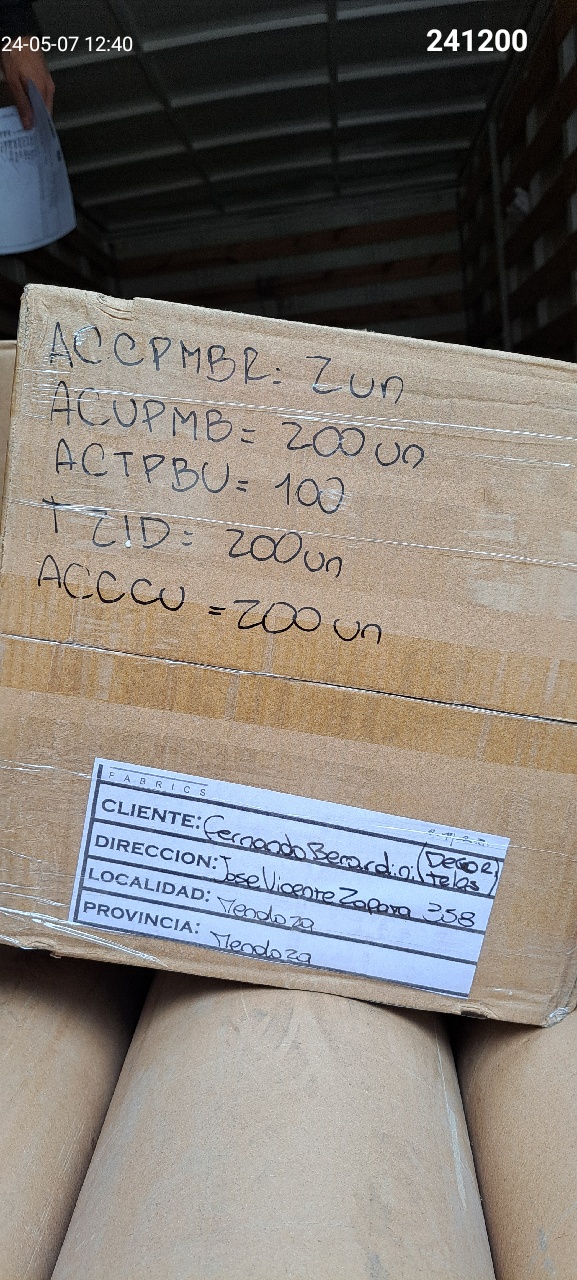 24-05-07 12:40
241200
ACCPMBR: 2 un
ACUPMB= 200 un
ACTPBU= 100
T ZID= 200 un
ACCCU =200 un
FABRICS
CLIENTE: Fernando Berardini (DECOR telas)
DIRECCION: Jose Vicente Zapata 358
LOCALIDAD: Mendoza
PROVINCIA: Mendoza